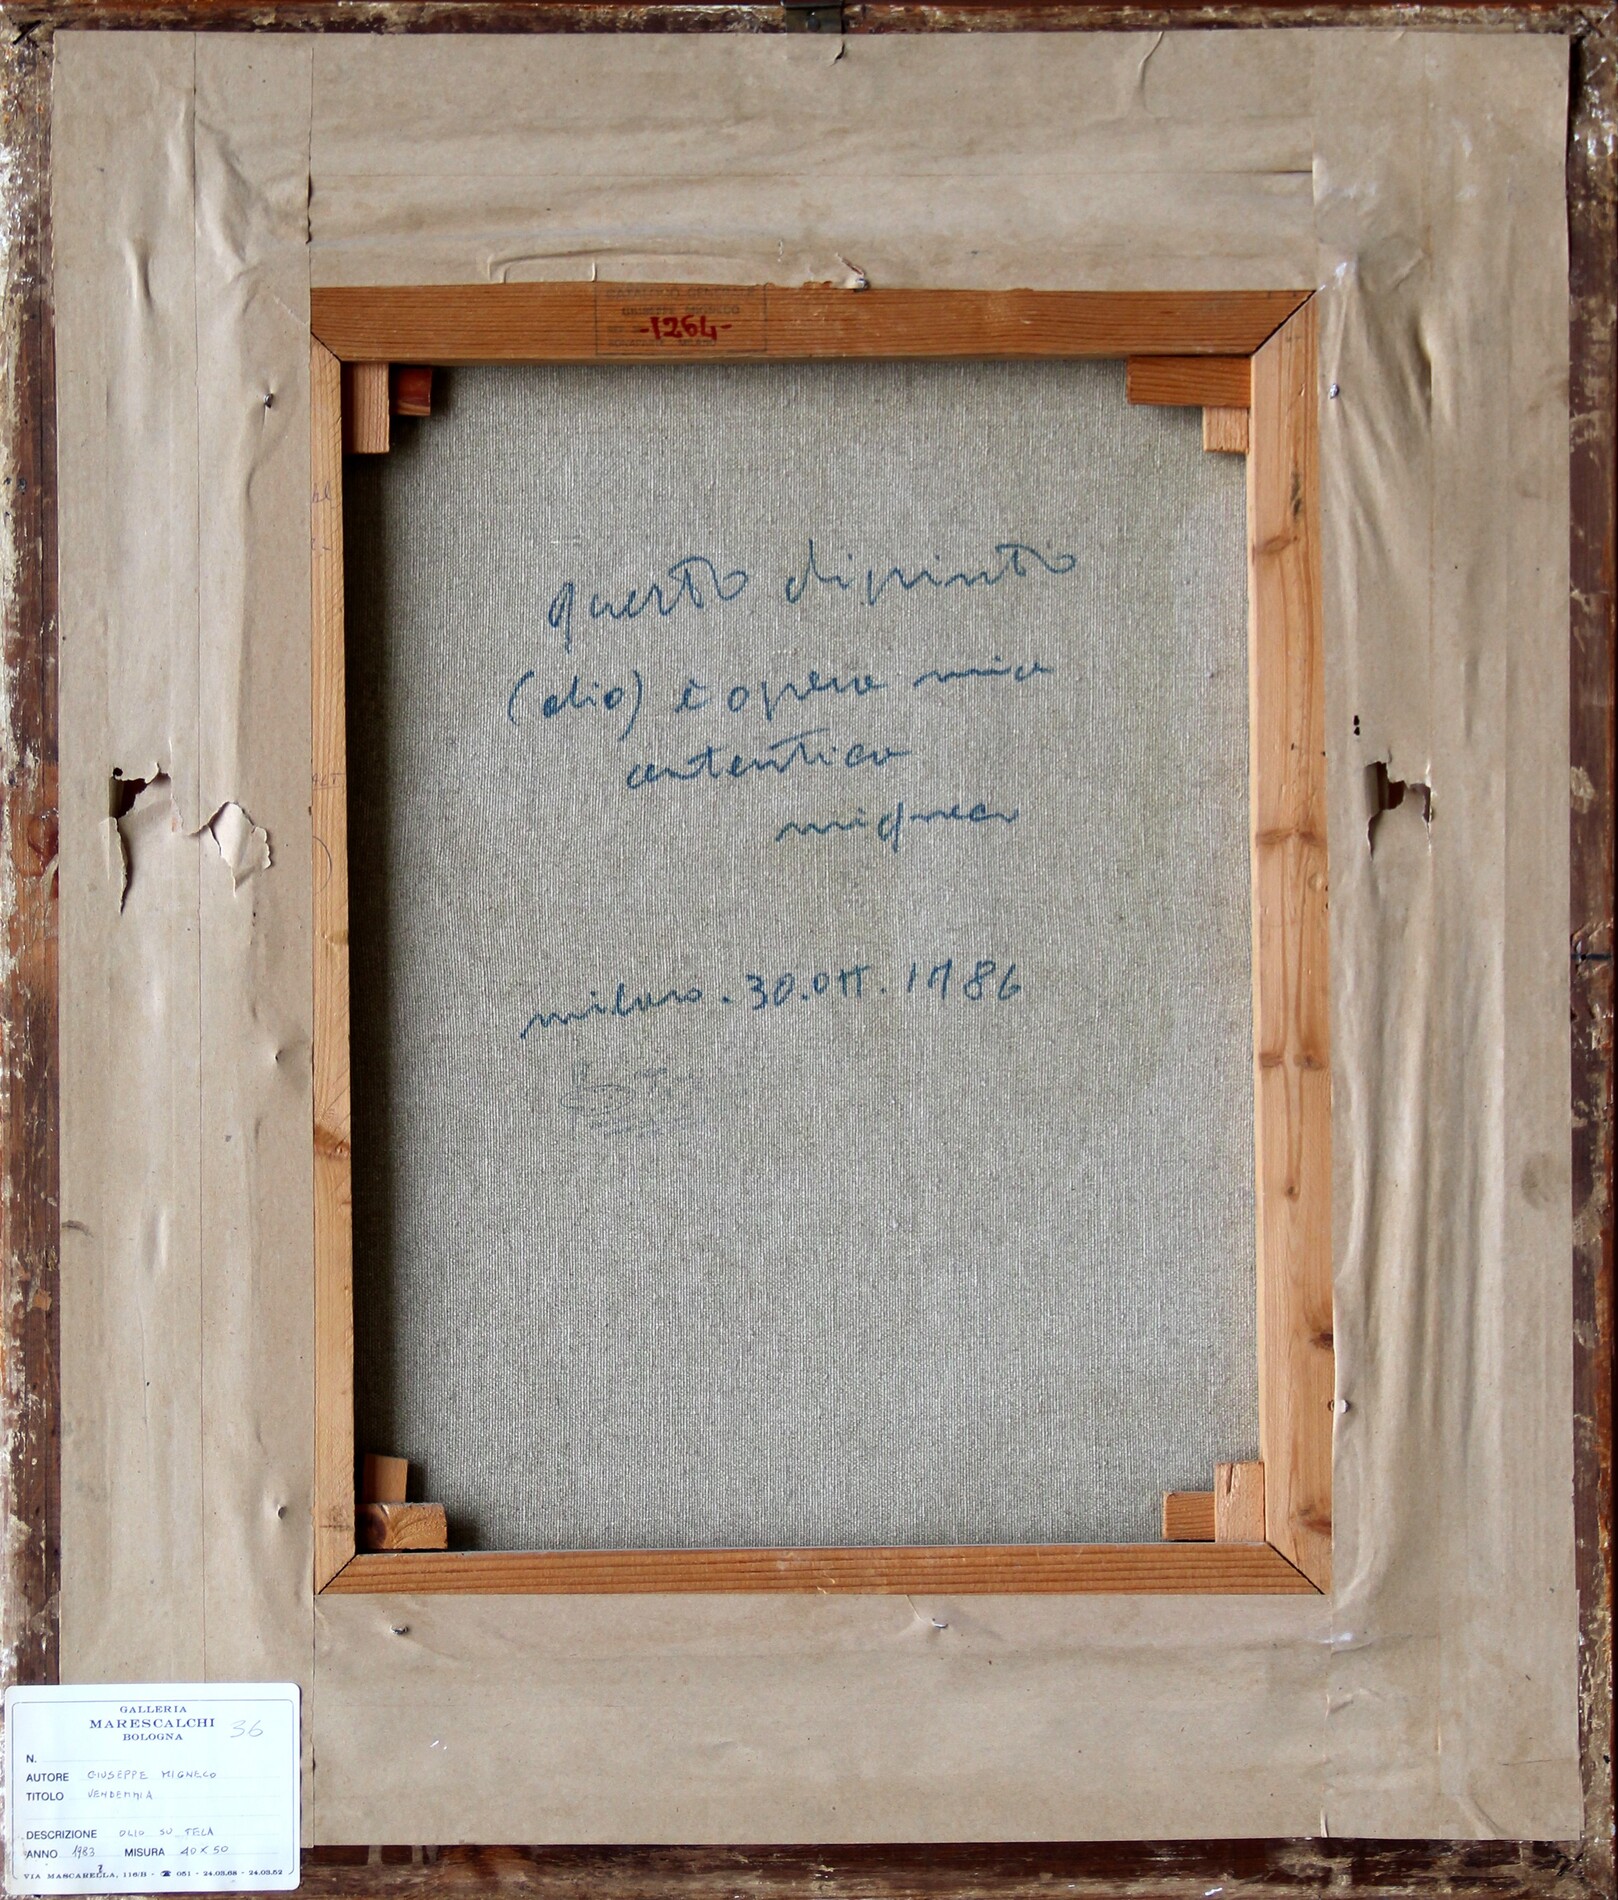 CATALOGO GENERALE
GIUSEPPE MIGNECO
-1264-
questo dipinto
(olio) è opera mia
autentica
migneco
milano. 30. ott. 1986
GALLERIA
MARESCALCHI
BOLOGNA
36
N.
AUTORE GIUSEPPE MIGNECO
TITOLO VENDEMMIA
DESCRIZIONE OLIO SU TELA
ANNO 1983 MISURA 40 X 50
VIA MASCARELLA, 116/B - ☎ 051 - 24.03.68 - 24.03.52